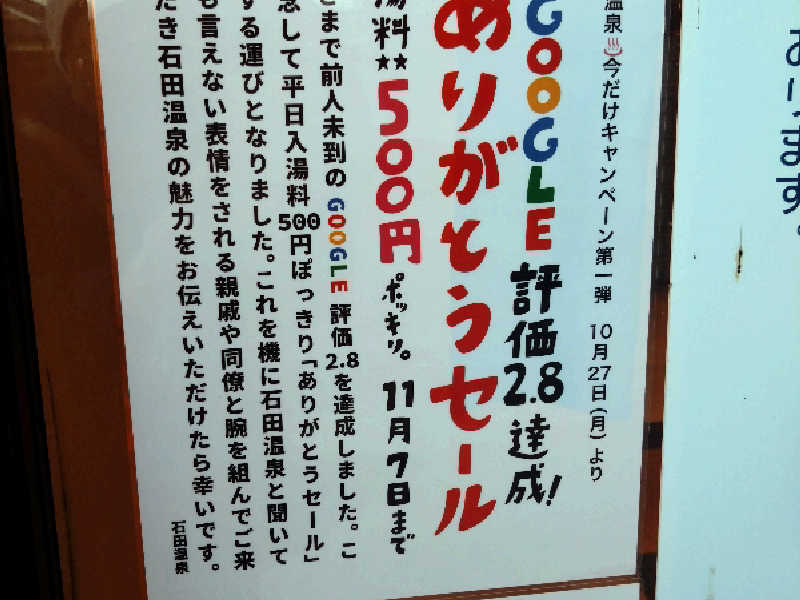 おります。
温泉♨今だけキャンペーン第一弾 10月27日(月)より
GOOGLE評価2.8達成!
ありがとうセール
湯料★★500円ポッキリ。11月7日まで
こまで前人未到のGOOGLE評価2.8を達成しました。こ
念して平日入湯料500円ぽっきり「ありがとうセール」
する運びとなりました。これを機に石田温泉と聞いて
も言えない表情をされる親戚や同僚と腕を組んでご来
だき石田温泉の魅力をお伝えいただけたら幸いです。
石田温泉